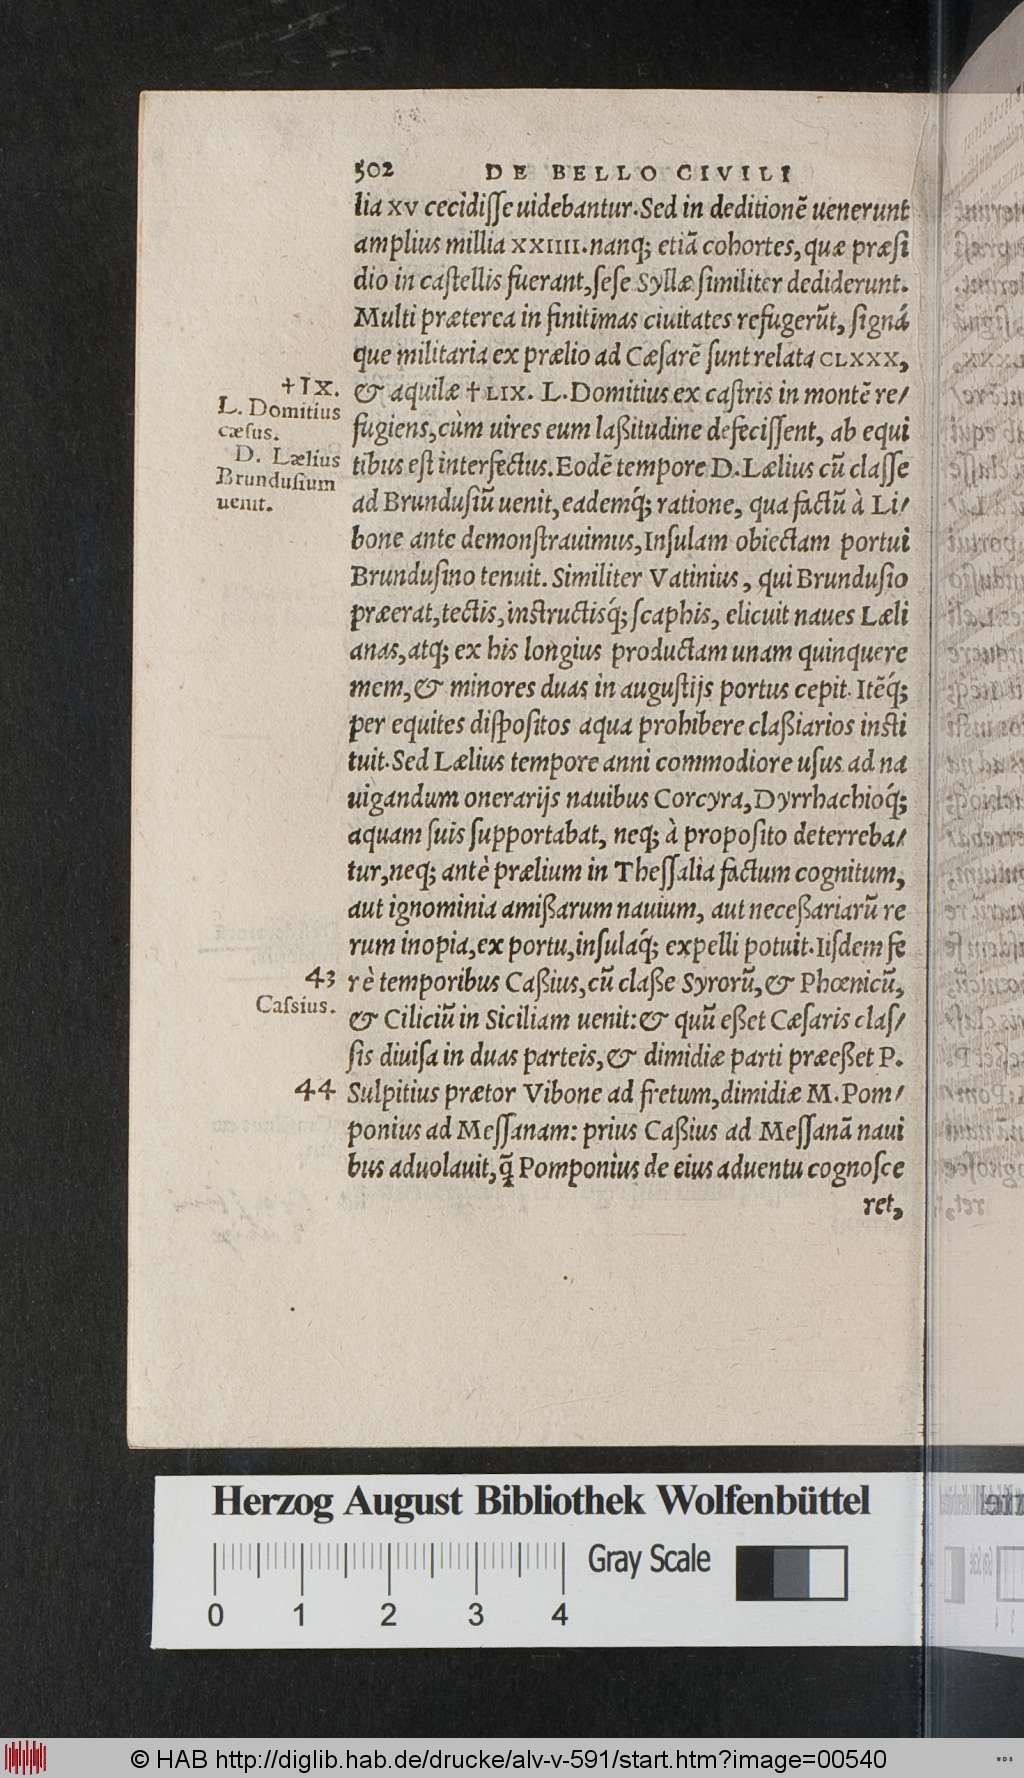 502 DE BELLO CIVILI
lia XV cecidisse uidebantur. Sed in deditionē uenerunt
amplius millia XXIIII. nanq; etiā cohortes, quæ præsi
dio in castellis fuerant, sese Syllæ similiter dediderunt.
Multi præterea in finitimas ciuitates refugerūt, signá
que militaria ex prælio ad Cæsarē sunt relata CLXXX,
†IX.
& aquilæ † LIX. L. Domitius ex castris in montē re/
L. Domitius
cæsus.
fugiens, cùm uires eum laßitudine defecissent, ab equi
D. Lælius
tibus est interfectus. Eodē tempore D. Lælius cū classe
Brundusium
uenit.
ad Brundusiū uenit, eademq́; ratione, qua factū à Li/
bone ante demonstrauimus, Insulam obiectam portui
Brundusino tenuit. Similiter Vatinius, qui Brundusio
præerat, tectis, instructisq́; scaphis, elicuit naues Læli
anas, atq; ex his longius productam unam quinquere
mem, & minores duas in augustijs portus cepit. Itēq́;
per equites dispositos aqua prohibere claßiarios insti
tuit. Sed Lælius tempore anni commodiore usus ad na
uigandum onerarijs nauibus Corcyra, Dyrrhachioq́;
aquam suis supportabat, neq; à proposito deterreba/
tur, neq; antè prælium in Thessalia factum cognitum,
aut ignominia amißarum nauium, aut neceßariarū re
rum inopia, ex portu, insulaq́; expelli potuit. Iisdem fe
43
rè temporibus Caßius, cū claße Syrorū, & Phœnicū,
Cassius.
& Ciliciū in Siciliam uenit: & quū eßet Cæsaris clas/
sis diuisa in duas parteis, & dimidiæ parti præeßet P.
44
Sulpitius prætor Vibone ad fretum, dimidiæ M. Pom/
ponius ad Messanam: prius Caßius ad Messanā naui
bus aduolauit, q̄ Pomponius de eius aduentu cognosce
ret,
Herzog August Bibliothek Wolfenbüttel
Gray Scale
0 1 2 3 4
© HAB http://diglib.hab.de/drucke/alv-v-591/start.htm?image=00540